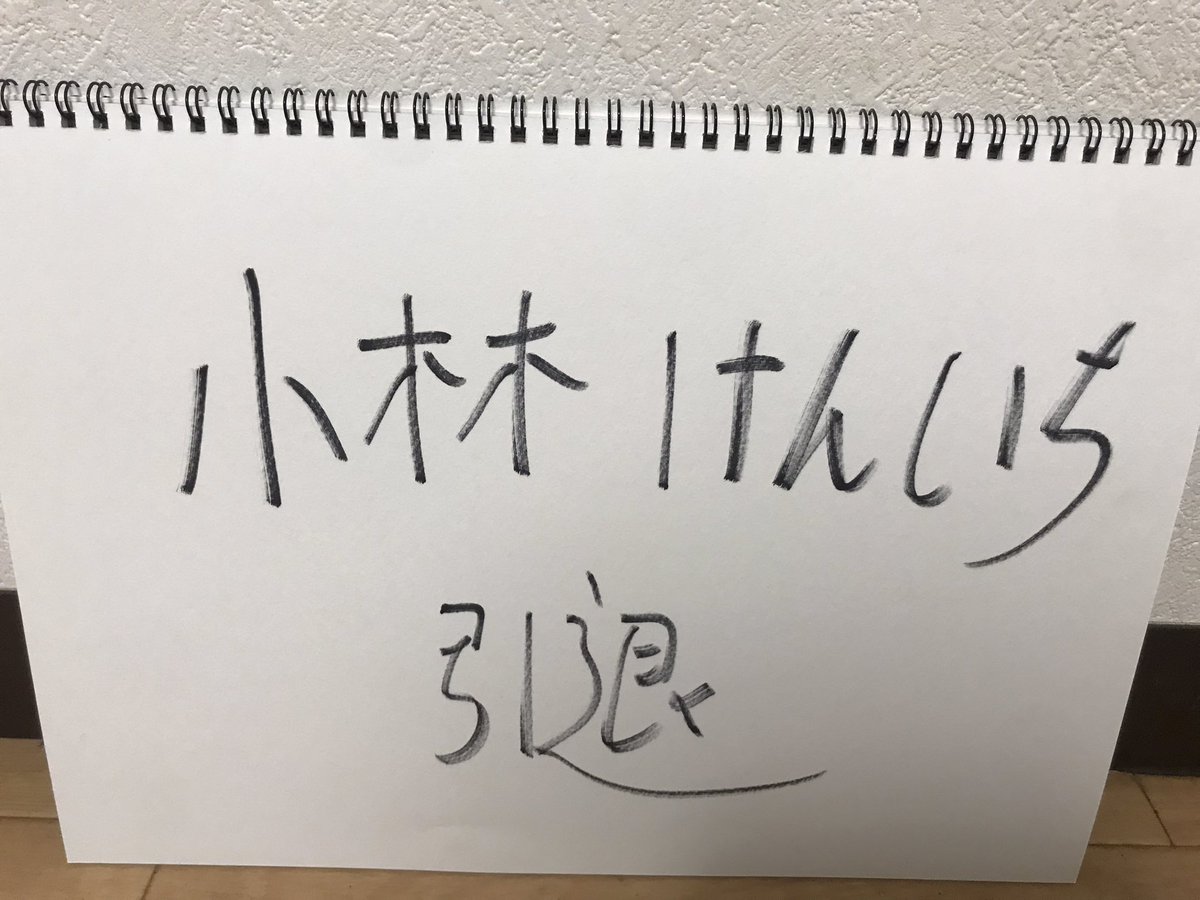 小林けんいち
引退